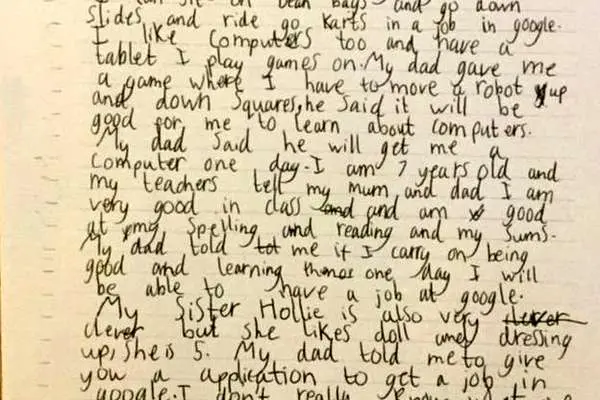 I can sit on bean bags and go down
slides and ride go karts in a job in google.
I like computers too and have a
tablet I play games on. My dad gave me
a game where I have to move a robot up
and down squares, he said it will be
good for me to learn about computers.
My dad said he will get me a
computer one day. I am 7 years old and
my teachers tell my mum and dad I am
very good in class and and am good
at spelling and reading and my sums.
My dad told me if I carry on being
good and learning one day I will
be able to have a job at google.
My sister Hollie is also very clever
clever but she likes doll and dressing
up, she is 5. My dad told me to give
you a application to get a job in
google. I don't really